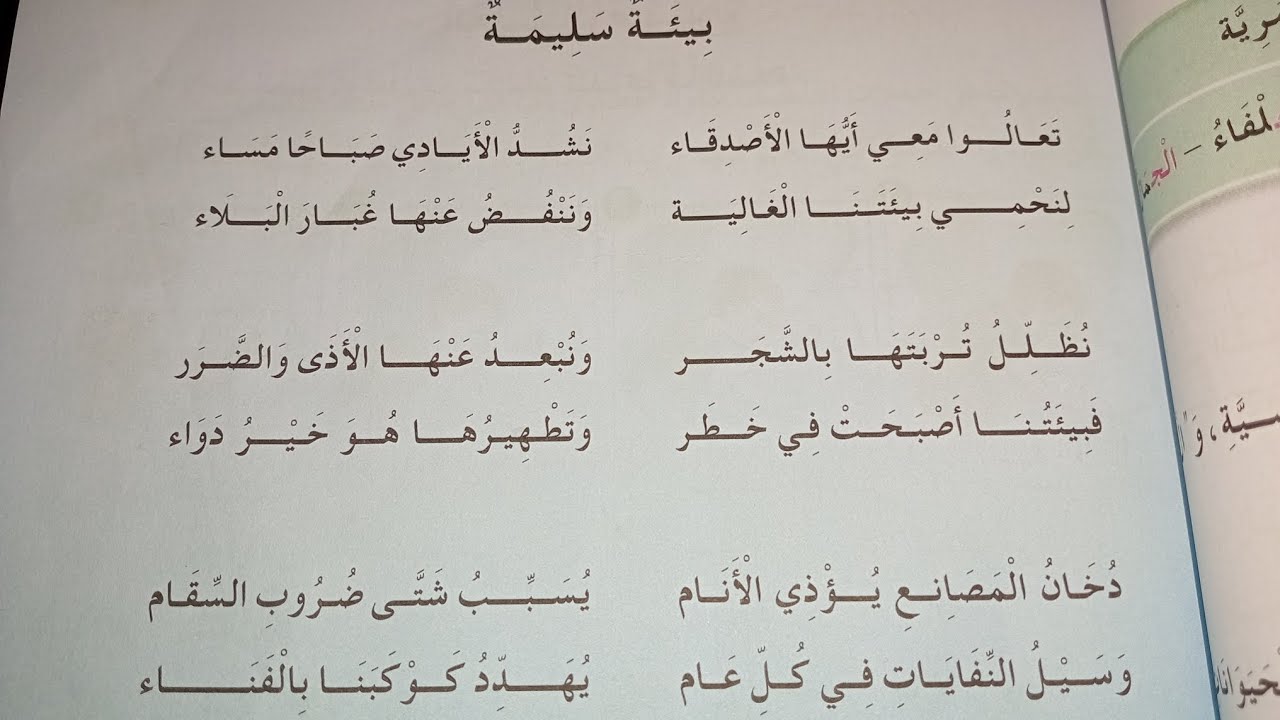 بِيئَةٌ سَلِيمَةٌ
تَعَالُوا مَعِي أَيُّهَا الْأَصْدِقَاء نَشُدُّ الْأَيَادِي صَبَاحًا مَسَاء
لِنَحْمِي بِيئَتَنَا الْغَالِيَة وَنَنْفُضُ عَنْهَا غُبَارَ الْبَلَاء
نُظَلِّلُ تُرْبَتَهَا بِالشَّجَر وَنُبْعِدُ عَنْهَا الْأَذَى وَالضَّرَر
فَبِيئَتُنَا أَصْبَحَتْ فِي خَطَر وَتَطْهِيرُهَا هُوَ خَيْرُ دَوَاء
دُخَانُ الْمَصَانِعِ يُؤْذِي الْأَنَام يُسَبِّبُ شَتَّى ضُرُوبِ السِّقَام
وَسَيْلُ النِّفَايَاتِ فِي كُلِّ عَام يُهَدِّدُ كَوْكَبَنَا بِالْفَنَاء